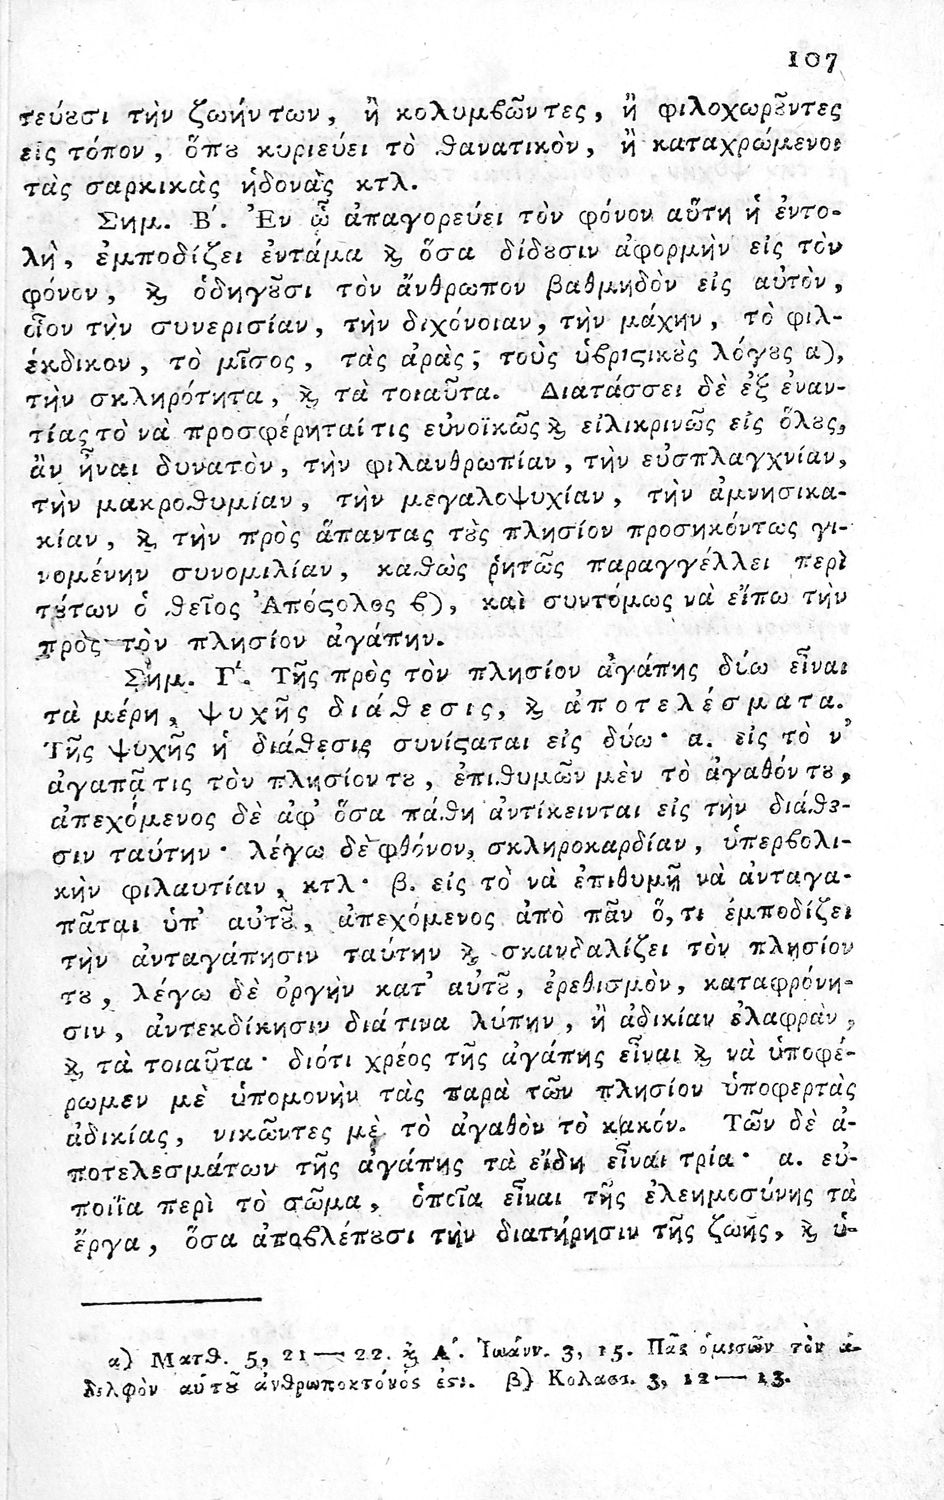 107
τεύȣσι τὴν ζωήν των, ἢ κολυμϐῶντες, ἢ φιλοχωρȣ͂ντες
εἰς τόπον, ὅπȣ κυριεύει τὸ θανατικὸν, ἢ καταχρώμενοι
τὰς σαρκικὰς ἡδονὰς κτλ.
Σημ. Β΄. Ἐν ᾧ ἀπαγορεύει τὸν φόνον αὕτη ἡ ἐντο-
λὴ, ἐμποδίζει ἐντάμα ϗ ὅσα δίδȣσιν ἀφορμὴν εἰς τὸν
φόνον, ϗ ὁδηγȣ͂σι τὸν ἄνθρωπον βαθμηδὸν εἰς αὐτὸν,
οἷον τὴν συνερισίαν, τὴν διχόνοιαν, τὴν μάχην, τὸ φιλ-
έκδικον, τὸ μῖσος, τὰς ἀρὰς; τοὺς ὑϐριϛικȣ̀ς λόγȣς α),
τὴν σκληρότητα, ϗ τὰ τοιαῦτα. Διατάσσει δὲ ἐξ ἐναν-
τίας τὸ νὰ προσφέρηταί τις εὐνοϊκῶς ϗ εἰλικρινῶς εἰς ὅλȣς,
ἂν ἦναι δυνατὸν, τὴν φιλανθρωπίαν, τὴν εὐσπλαγχνίαν,
τὴν μακροθυμίαν, τὴν μεγαλοψυχίαν, τὴν ἀμνησικα-
κίαν, ϗ τὴν πρὸς ἅπαντας τȣ̀ς πλησίον προσηκόντως γι-
νομένην συνομιλίαν, καθὼς ῥητῶς παραγγέλλει περὶ
τȣ́των ὁ θεῖος Ἀπόϛολος ϐ), καὶ συντόμως νὰ εἴπω τὴν
πρὸς τὸν πλησίον ἀγάπην.
Σημ. Γ΄. Τῆς πρὸς τὸν πλησίον ἀγάπης δύω εἶναι
τὰ μέρη, ψυχῆς διάθεσις, ϗ ἀποτελέσματα.
Τῆς ψυχῆς ἡ διάθεσις συνίϛαται εἰς δύω· α. εἰς τὸ ν'
ἀγαπᾷ τις τὸν πλησίον τȣ, ἐπιθυμῶν μὲν τὸ ἀγαθόν τȣ,
ἀπεχόμενος δὲ ἀφ' ὅσα πάθη ἀντίκεινται εἰς τὴν διάθε-
σιν ταύτην· λέγω δὲ φθόνον, σκληροκαρδίαν, ὑπερϐολι-
κὴν φιλαυτίαν, κτλ· β. εἰς τὸ νὰ ἐπιθυμῇ νὰ ἀνταγα-
πᾶται ὑπ' αὐτȣ͂, ἀπεχόμενος ἀπὸ πᾶν ὅ,τι ἐμποδίζει
τὴν ἀνταγάπησιν ταύτην ϗ σκανδαλίζει τὸν πλησίον
τȣ, λέγω δὲ ὀργὴν κατ' αὐτȣ͂, ἐρεθισμὸν, καταφρόνη-
σιν, ἀντεκδίκησιν διά τινα λύπην, ἢ ἀδικίαν ἐλαφρὰν,
ϗ τὰ τοιαῦτα· διότι χρέος τῆς ἀγάπης εἶναι ϗ νὰ ὑποφέ-
ρωμεν μὲ ὑπομονὴν τὰς παρὰ τῶν πλησίον ὑποφερτὰς
ἀδικίας, νικῶντες μὲ τὸ ἀγαθὸν τὸ κακόν. Τῶν δὲ ἀ-
ποτελεσμάτων τῆς ἀγάπης τὰ εἴδη εἶναι τρία· α. εὐ-
ποιΐα περὶ τὸ σῶμα, ὁποῖα εἶναι τῆς ἐλεημοσύνης τὰ
ἔργα, ὅσα ἀποϐλέπȣσι τὴν διατήρησιν τῆς ζωῆς, ϗ ὑ-
α) Ματθ. 5, 21—22. ϗ Α΄. Ἰωάνν. 3, 15. Πᾶς ὁ μισῶν τὸν ἀ-
δελφὸν αὑτȣ͂ ἀνθρωποκτόνος ἐϛι. β) Κολασσ. 3, 12—13.